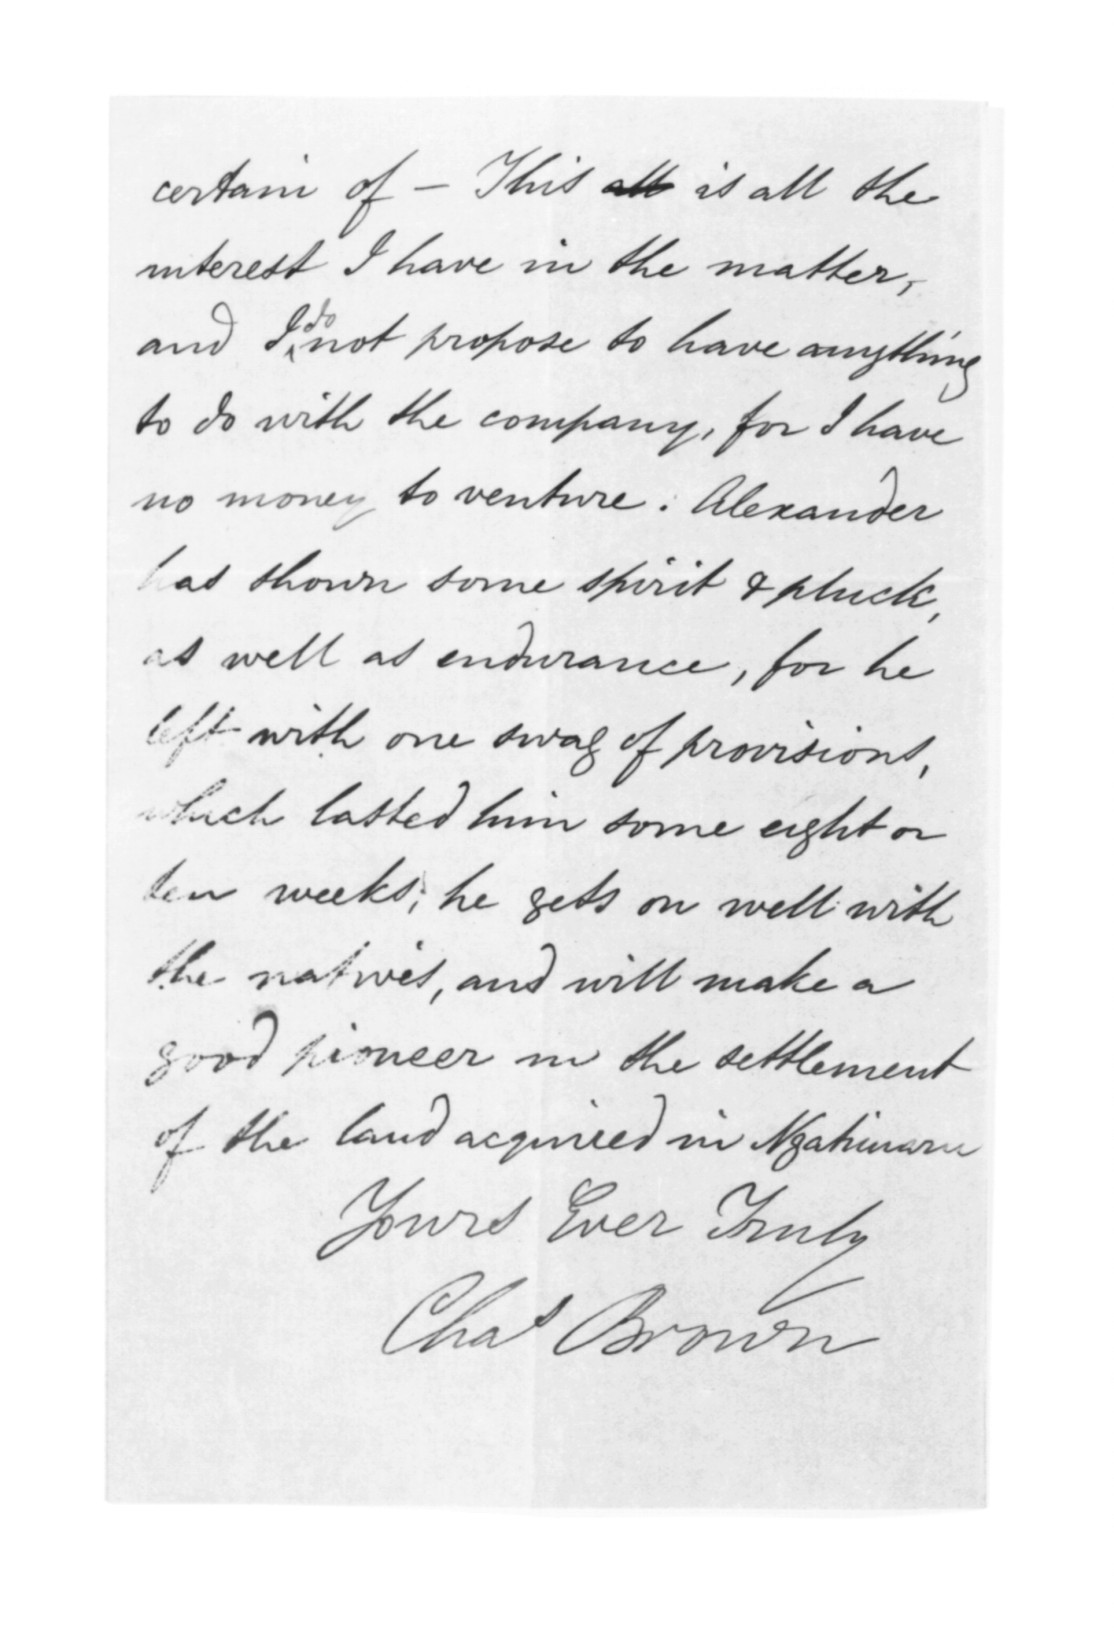 certain of — This all is all the
interest I have in the matter,
and I do not propose to have anything
to do with the company, for I have
no money to venture. Alexander
has shown some spirit & pluck,
as well as endurance, for he
left with one swag of provisions,
which lasted him some eight or
ten weeks; he gets on well with
the natives, and will make a
good pioneer in the settlement
of the land acquired in Ngatimaru
Yours Ever Truly
Chas Brown